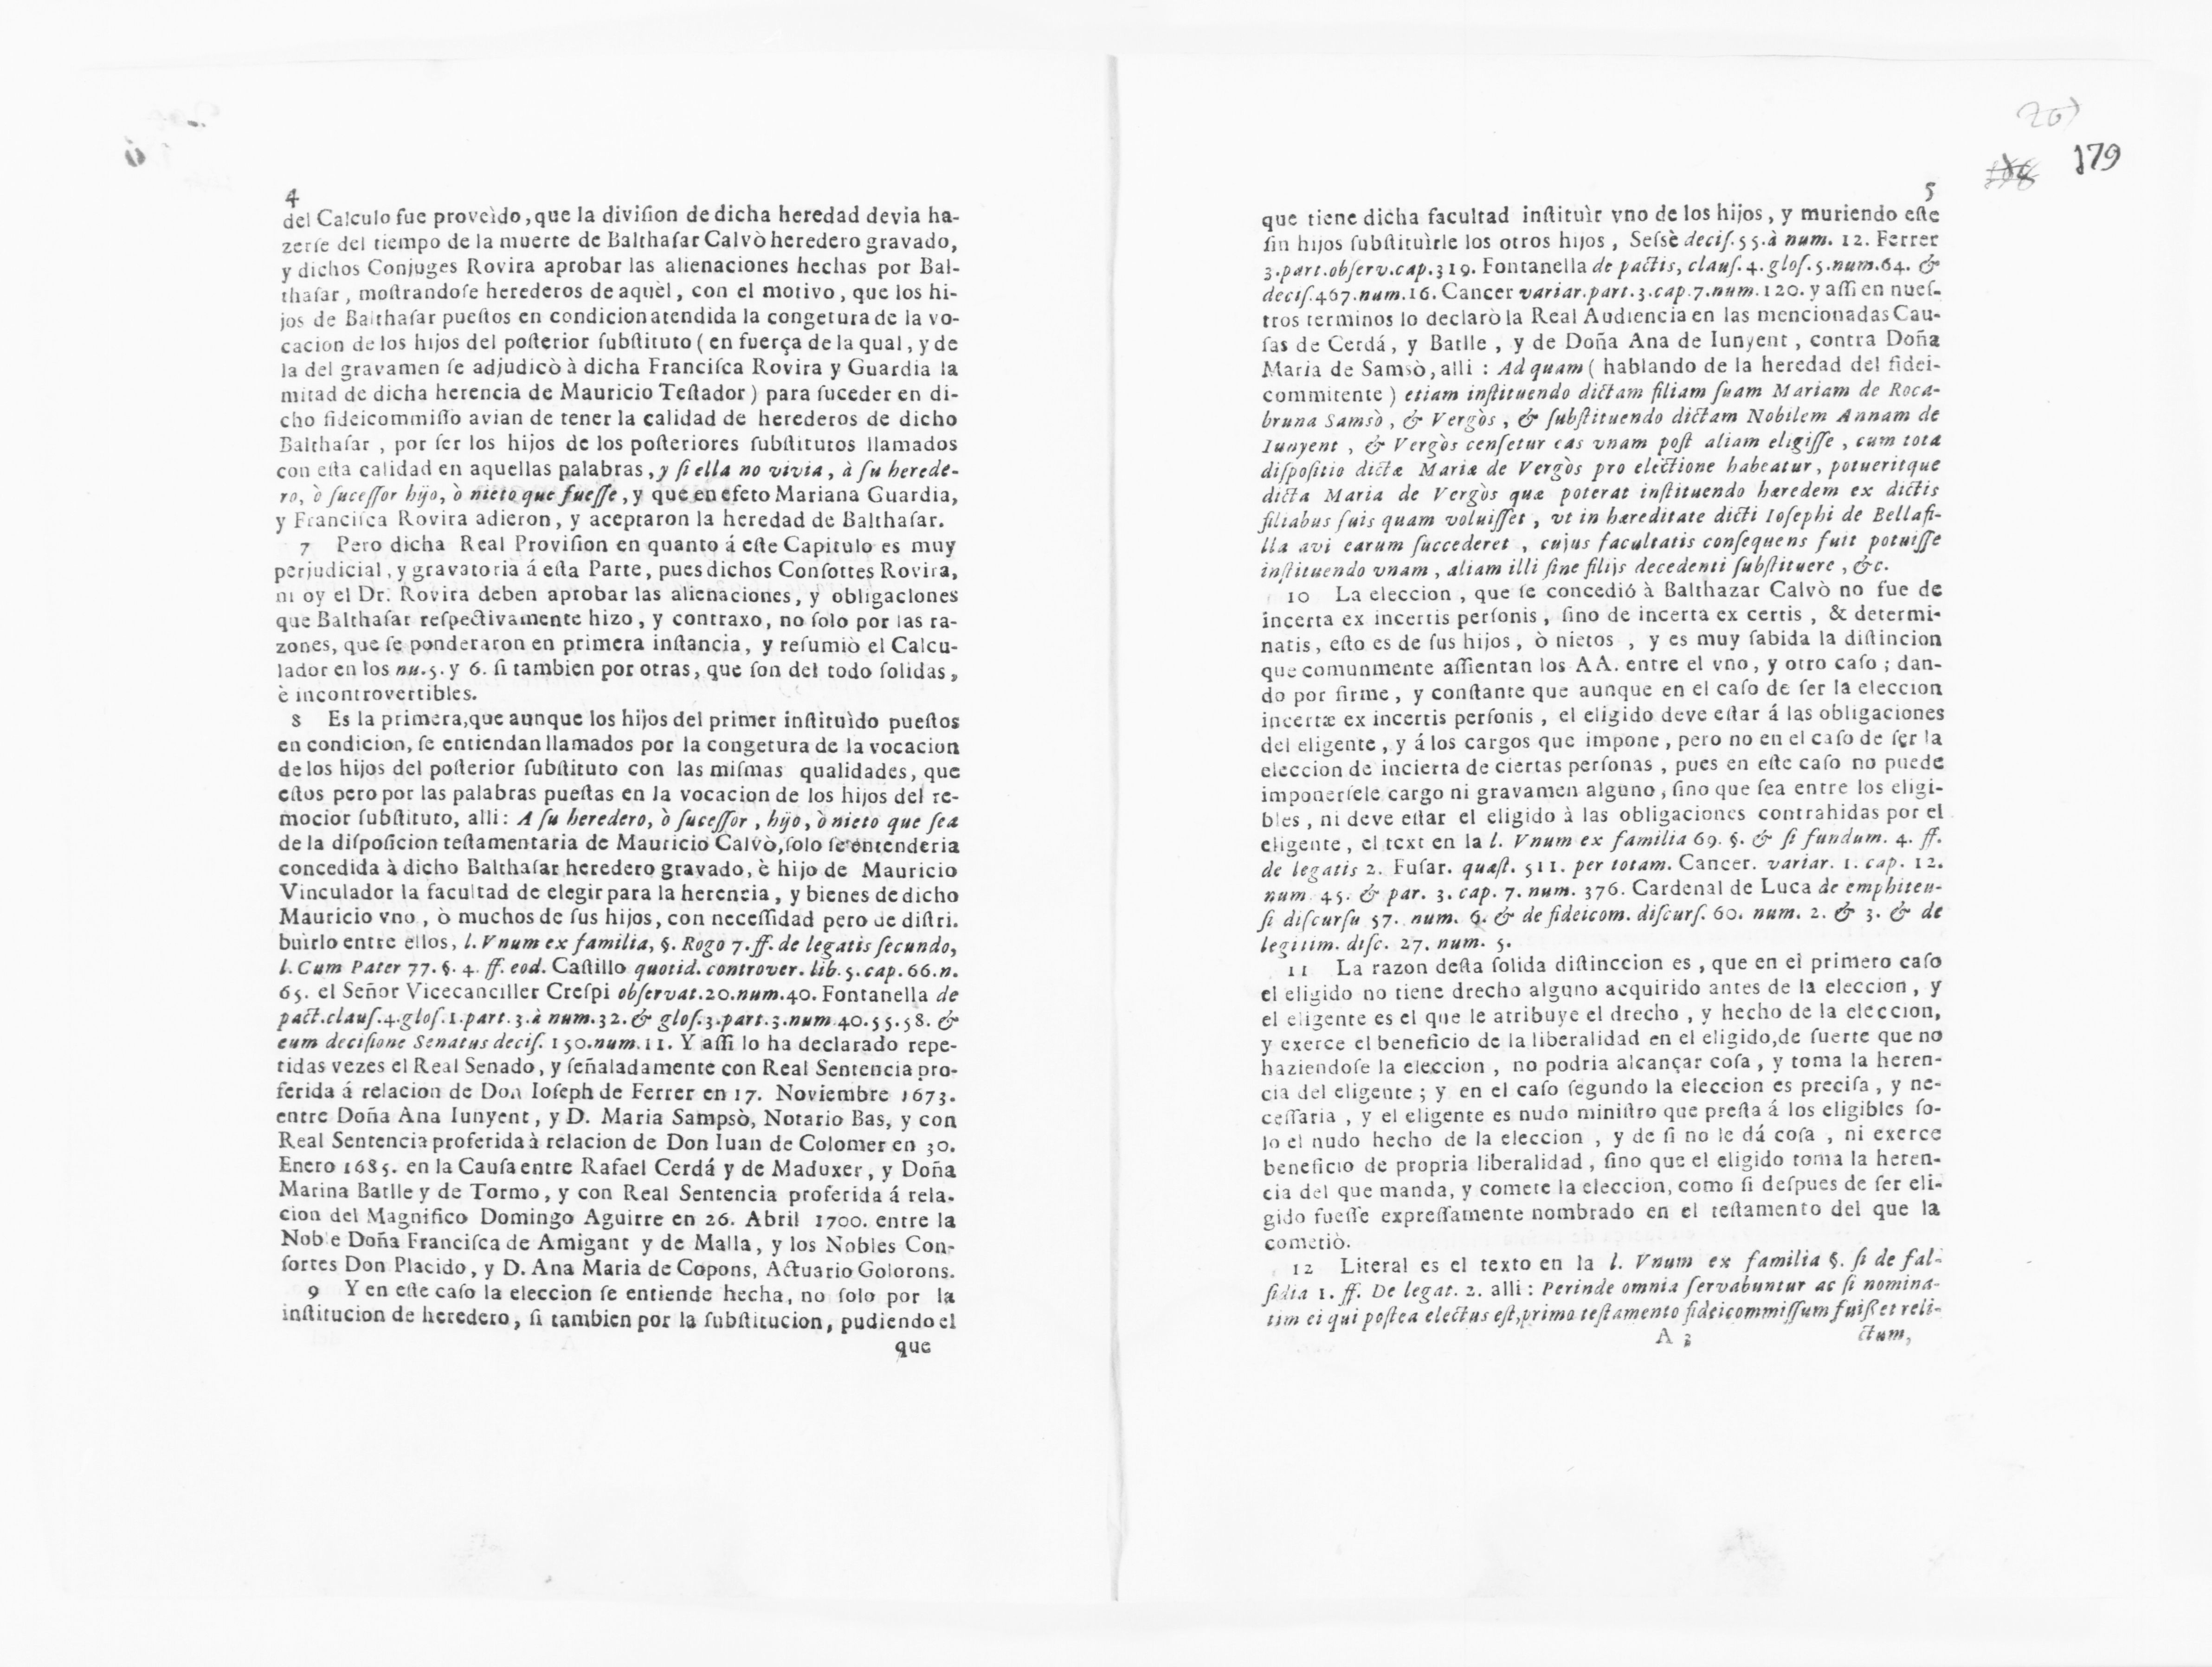 4
del Calculo fue proveìdo, que la diviſion de dicha heredad devia ha-
zerſe del tiempo de la muerte de Balthaſar Calvò heredero gravado,
y dichos Conjuges Rovira aprobar las alienaciones hechas por Bal-
thaſar, moſtrandoſe herederos de aquèl, con el motivo, que los hi-
jos de Balthaſar pueſtos en condicion atendida la congetura de la vo-
cacion de los hijos del poſterior ſubſtituto ( en fuerça de la qual, y de
la del gravamen ſe adjudicò à dicha Franciſca Rovira y Guardia la
mitad de dicha herencia de Mauricio Teſtador ) para ſuceder en di-
cho fideicommiſſo avian de tener la calidad de herederos de dicho
Balthaſar, por ſer los hijos de los poſteriores ſubſtitutos llamados
con eſta calidad en aquellas palabras, y ſi ella no vivia, à ſu herede-
ro, ò ſuceſſor hijo, ò nieto que fueſſe, y que en efeto Mariana Guardia,
y Franciſca Rovira adieron, y aceptaron la heredad de Balthaſar.
7 Pero dicha Real Proviſion en quanto á eſte Capitulo es muy
perjudicial, y gravatoria á eſta Parte, pues dichos Conſortes Rovira,
ni oy el Dr. Rovira deben aprobar las alienaciones, y obligaciones
que Balthaſar reſpectivamente hizo, y contraxo, no ſolo por las ra-
zones, que ſe ponderaron en primera inſtancia, y reſumiò el Calcu-
lador en los nu. 5. y 6. ſi tambien por otras, que ſon del todo ſolidas,
è incontrovertibles.
8 Es la primera, que aunque los hijos del primer inſtituìdo pueſtos
en condicion, ſe entiendan llamados por la congetura de la vocacion
de los hijos del poſterior ſubſtituto con las miſmas qualidades, que
eſtos pero por las palabras pueſtas en la vocacion de los hijos del re-
mocior ſubſtituto, alli: A ſu heredero, ò ſuceſſor, hijo, ò nieto que ſea
de la diſpoſicion teſtamentaria de Mauricio Calvò, ſolo ſe entenderia
concedida à dicho Balthaſar heredero gravado, è hijo de Mauricio
Vinculador la facultad de elegir para la herencia, y bienes de dicho
Mauricio vno, ò muchos de ſus hijos, con neceſſidad pero de diſtri-
buìrlo entre ellos, l. Vnum ex familia, §. Rogo 7. ff. de legatis ſecundo,
l. Cum Pater 77. §. 4. ff. eod. Caſtillo quotid. controver. lib. 5. cap. 66. n.
65. el Señor Vicecanciller Creſpi obſervat. 20. num. 40. Fontanella de
pact. clauſ. 4. gloſ. 1. part. 3. à num. 32. & gloſ. 3. part. 3. num 40. 55. 58. &
eum deciſione Senatus deciſ. 150. num. 11. Y aſſi lo ha declarado repe-
tidas vezes el Real Senado, y ſeñaladamente con Real Sentencia pro-
ferida á relacion de Don Ioſeph de Ferrer en 17. Noviembre 1673.
entre Doña Ana Iunyent, y D. Maria Sampsò, Notario Bas, y con
Real Sentencia proferida à relacion de Don Iuan de Colomer en 30.
Enero 1685. en la Cauſa entre Rafael Cerdá y de Maduxer, y Doña
Marina Batlle y de Tormo, y con Real Sentencia proferida á rela-
cion del Magnifico Domingo Aguirre en 26. Abril 1700. entre la
Noble Doña Franciſca de Amigant y de Malla, y los Nobles Con-
ſortes Don Placido, y D. Ana Maria de Copons, Actuario Golorons.
9 Y en eſte caſo la eleccion ſe entiende hecha, no ſolo por la
inſtitucion de heredero, ſi tambien por la ſubſtitucion, pudiendo el
que
179
5
que tiene dicha facultad inſtituìr vno de los hijos, y muriendo eſte
ſin hijos ſubſtituìrle los otros hijos, Seſsè deciſ. 55. à num. 12. Ferrer
3. part. obſerv. cap. 319. Fontanella de pactis, clauſ. 4. gloſ. 5. num. 64. &
deciſ. 467. num. 16. Cancer variar. part. 3. cap. 7. num. 120. y aſſi en nueſ-
tros terminos lo declarò la Real Audiencia en las mencionadas Cau-
ſas de Cerdá, y Batlle, y de Doña Ana de Iunyent, contra Doña
Maria de Samsò, alli : Ad quam ( hablando de la heredad del fidei-
commitente ) etiam inſtituendo dictam filiam ſuam Mariam de Roca-
bruna Samsò, & Vergòs, & ſubſtituendo dictam Nobilem Annam de
Iunyent, & Vergòs cenſetur eas vnam poſt aliam eligiſſe, cum tota
diſpoſitio dictæ Mariæ de Vergòs pro electione habeatur, potueritque
dicta Maria de Vergòs quæ poterat inſtituendo hæredem ex dictis
filiabus ſuis quam voluiſſet, vt in hæreditate dicti Ioſephi de Bellaſi-
lla avi earum ſuccederet, cujus facultatis conſequens fuit potuiſſe
inſtituendo vnam, aliam illi ſine filijs decedenti ſubſtituere, &c.
10 La eleccion, que ſe concedió à Balthazar Calvò no fue de
incerta ex incertis perſonis, ſino de incerta ex certis, & determi-
natis, eſto es de ſus hijos, ò nietos, y es muy ſabida la diſtincion
que comunmente aſſientan los AA. entre el vno, y otro caſo; dan-
do por firme, y conſtante que aunque en el caſo de ſer la eleccion
incertæ ex incertis perſonis, el eligido deve eſtar á las obligaciones
del eligente, y á los cargos que impone, pero no en el caſo de ſer la
eleccion de incierta de ciertas perſonas, pues en eſte caſo no puede
imponerſele cargo ni gravamen alguno, ſino que ſea entre los eligi-
bles, ni deve eſtar el eligido à las obligaciones contrahidas por el
eligente, el text en la l. Vnum ex familia 69. §. & ſi fundum. 4. ff.
de legatis 2. Fuſar. quæſt. 511. per totam. Cancer. variar. 1. cap. 12.
num. 45. & par. 3. cap. 7. num. 376. Cardenal de Luca de emphiteu-
ſi diſcurſu 57. num. 6. & de fideicom. diſcurſ. 60. num. 2. & 3. & de
legitim. diſc. 27. num. 5.
11 La razon deſta ſolida diſtinccion es, que en el primero caſo
el eligido no tiene drecho alguno acquirido antes de la eleccion, y
el eligente es el que le atribuye el drecho, y hecho de la eleccion,
y exerce el beneficio de la liberalidad en el eligido, de ſuerte que no
haziendoſe la eleccion, no podria alcançar coſa, y toma la heren-
cia del eligente; y en el caſo ſegundo la eleccion es preciſa, y ne-
ceſſaria, y el eligente es nudo miniſtro que preſta á los eligibles ſo-
lo el nudo hecho de la eleccion, y de ſi no le dá coſa, ni exerce
beneficio de propria liberalidad, ſino que el eligido toma la heren-
cia del que manda, y comete la eleccion, como ſi deſpues de ſer eli-
gido fueſſe expreſſamente nombrado en el teſtamento del que la
cometiò.
12 Literal es el texto en la l. Vnum ex familia §. ſi de fal-
ſidia 1. ff. De legat. 2. alli : Perinde omnia ſervabuntur ac ſi nomina-
tim ei qui poſtea electus eſt, primo teſtamento fideicommiſſum fuiſſet reli-
A 3 ctum,